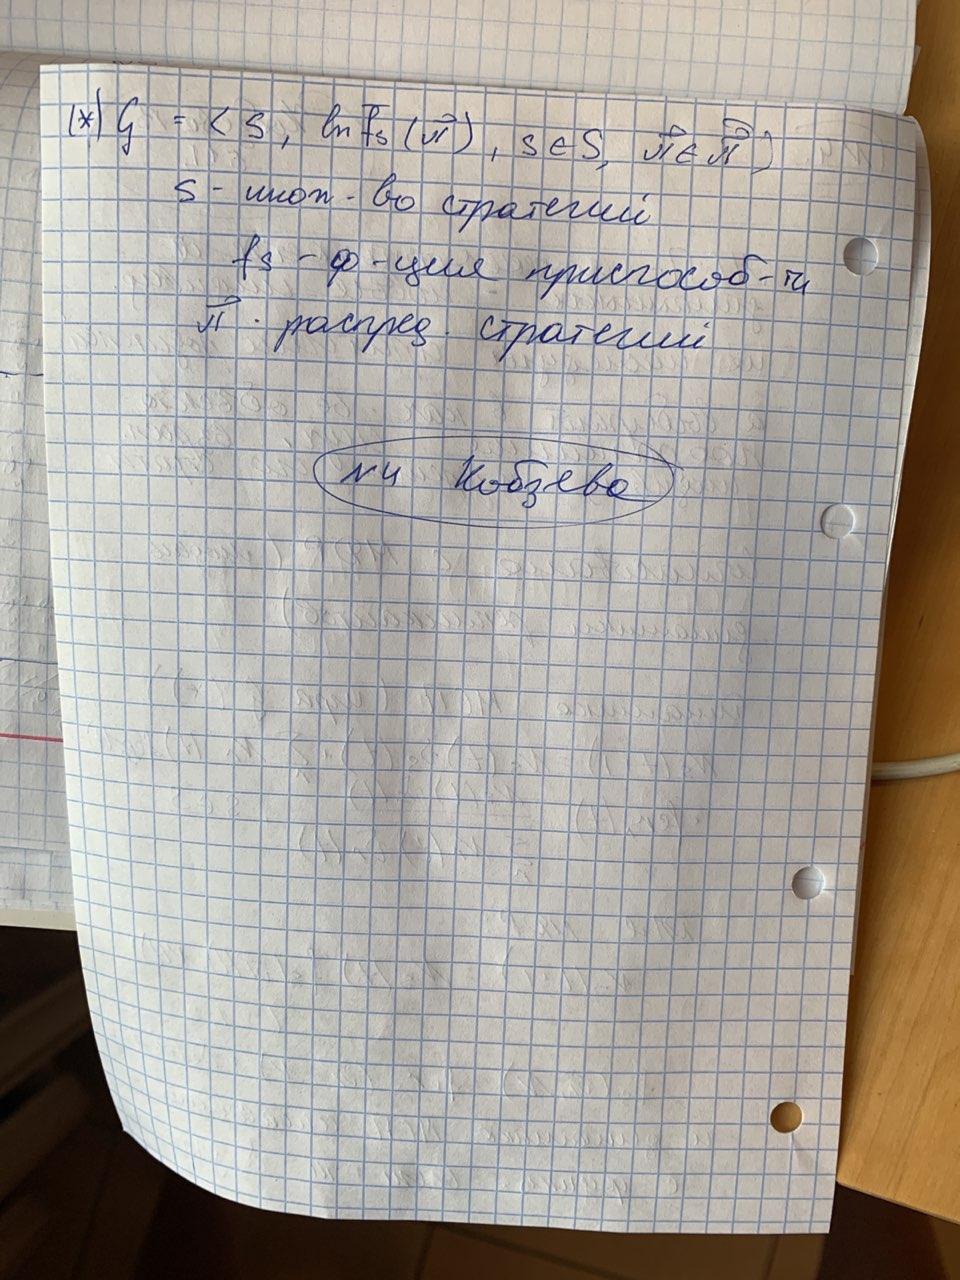 (*) G = < S, ln f̅s (π⃗), s ∈ S, π⃗ ∈ π⃗ >
S - множ-во стратегий
fs - ф-ция приспособ-ти
π⃗ - распред. стратегий
N4 Кобзева